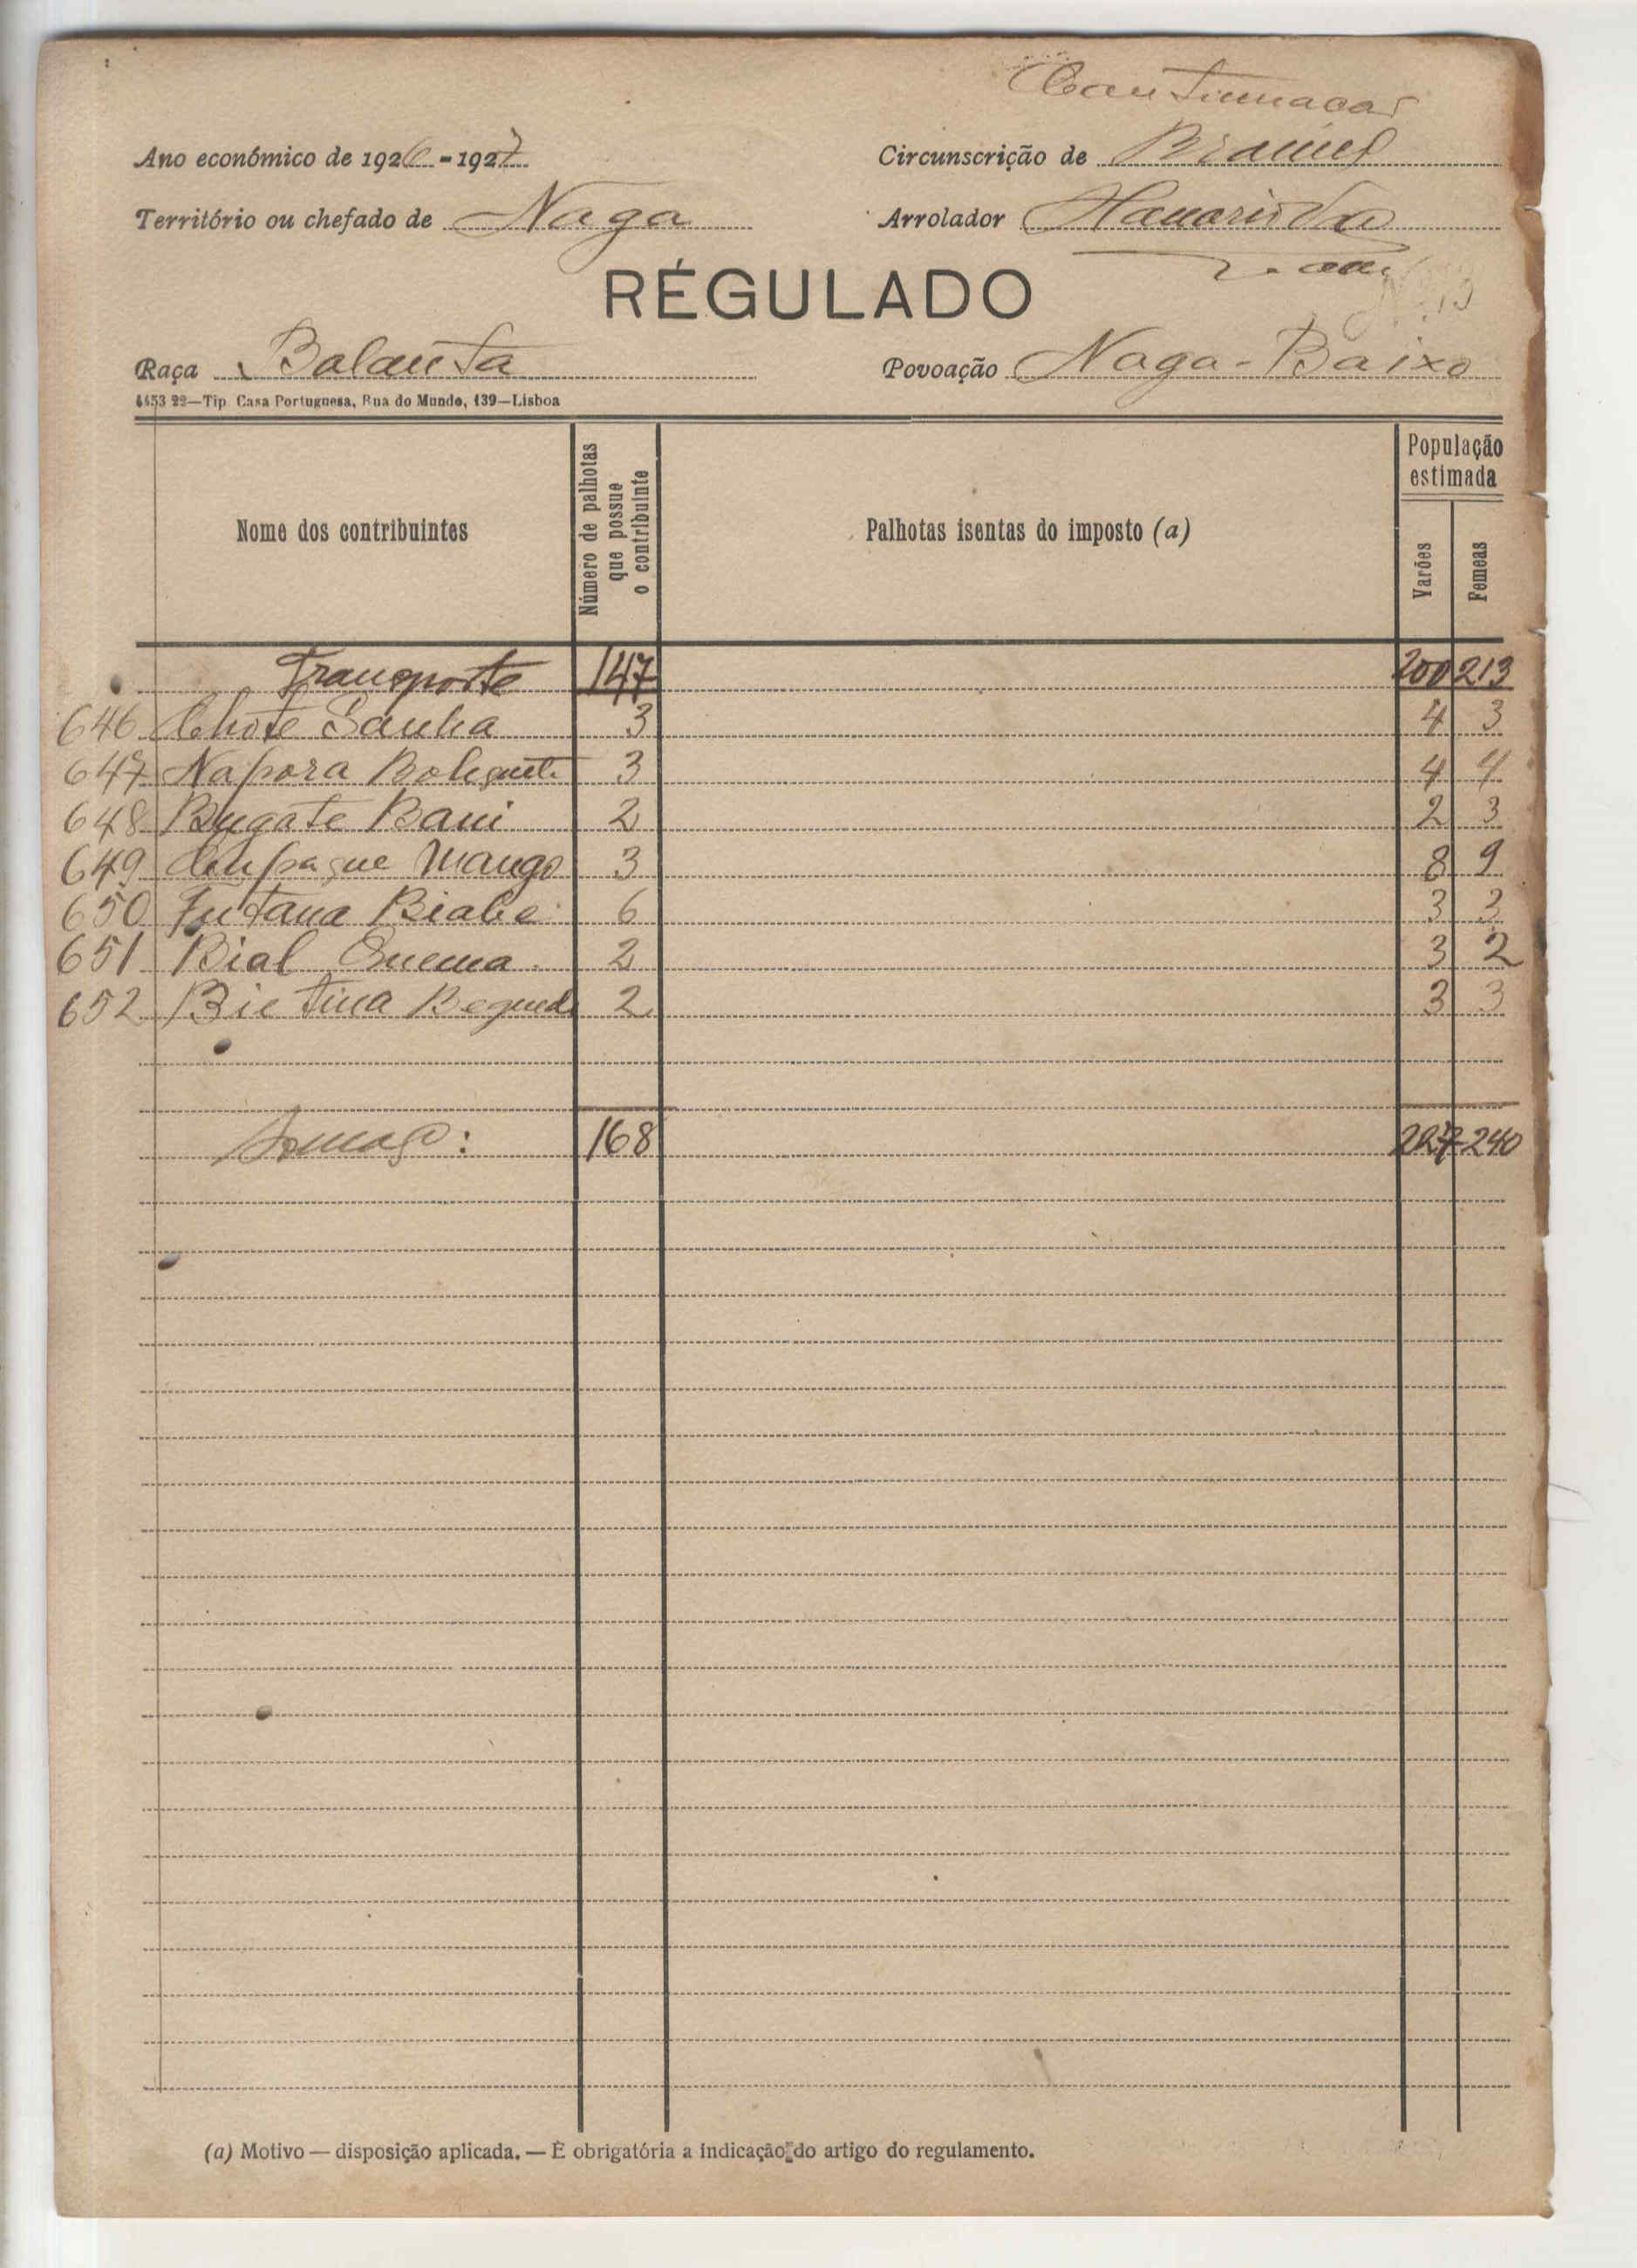 Continuaçaõ
Ano económico de 1926 - 1927
Circunscrição de
Território ou chefado de Naga
Arrolador
RÉGULADO
Raça Balanta
Povoação Naga - Baixo
4453 22—Tip. Casa Portuguesa, Rua do Mundo, 139—Lisboa
Nome dos contribuintes
Número de palhotas que possue o contribuinte
Palhotas isentas do imposto (a)
População estimada
Varões
Femeas
Transporte 147 200 213
646 Chote Sanha 3 4 3
647 Napora 3 4 4
648 Bugate Bani 2 2 3
649 Mango 3 8 9
650 Futana Biabe 6 3 3
651 Bial 2 3 2
652 Bietina 2 3 3
Somas: 168 227 240
(a) Motivo — disposição aplicada. — É obrigatória a indicação do artigo do regulamento.